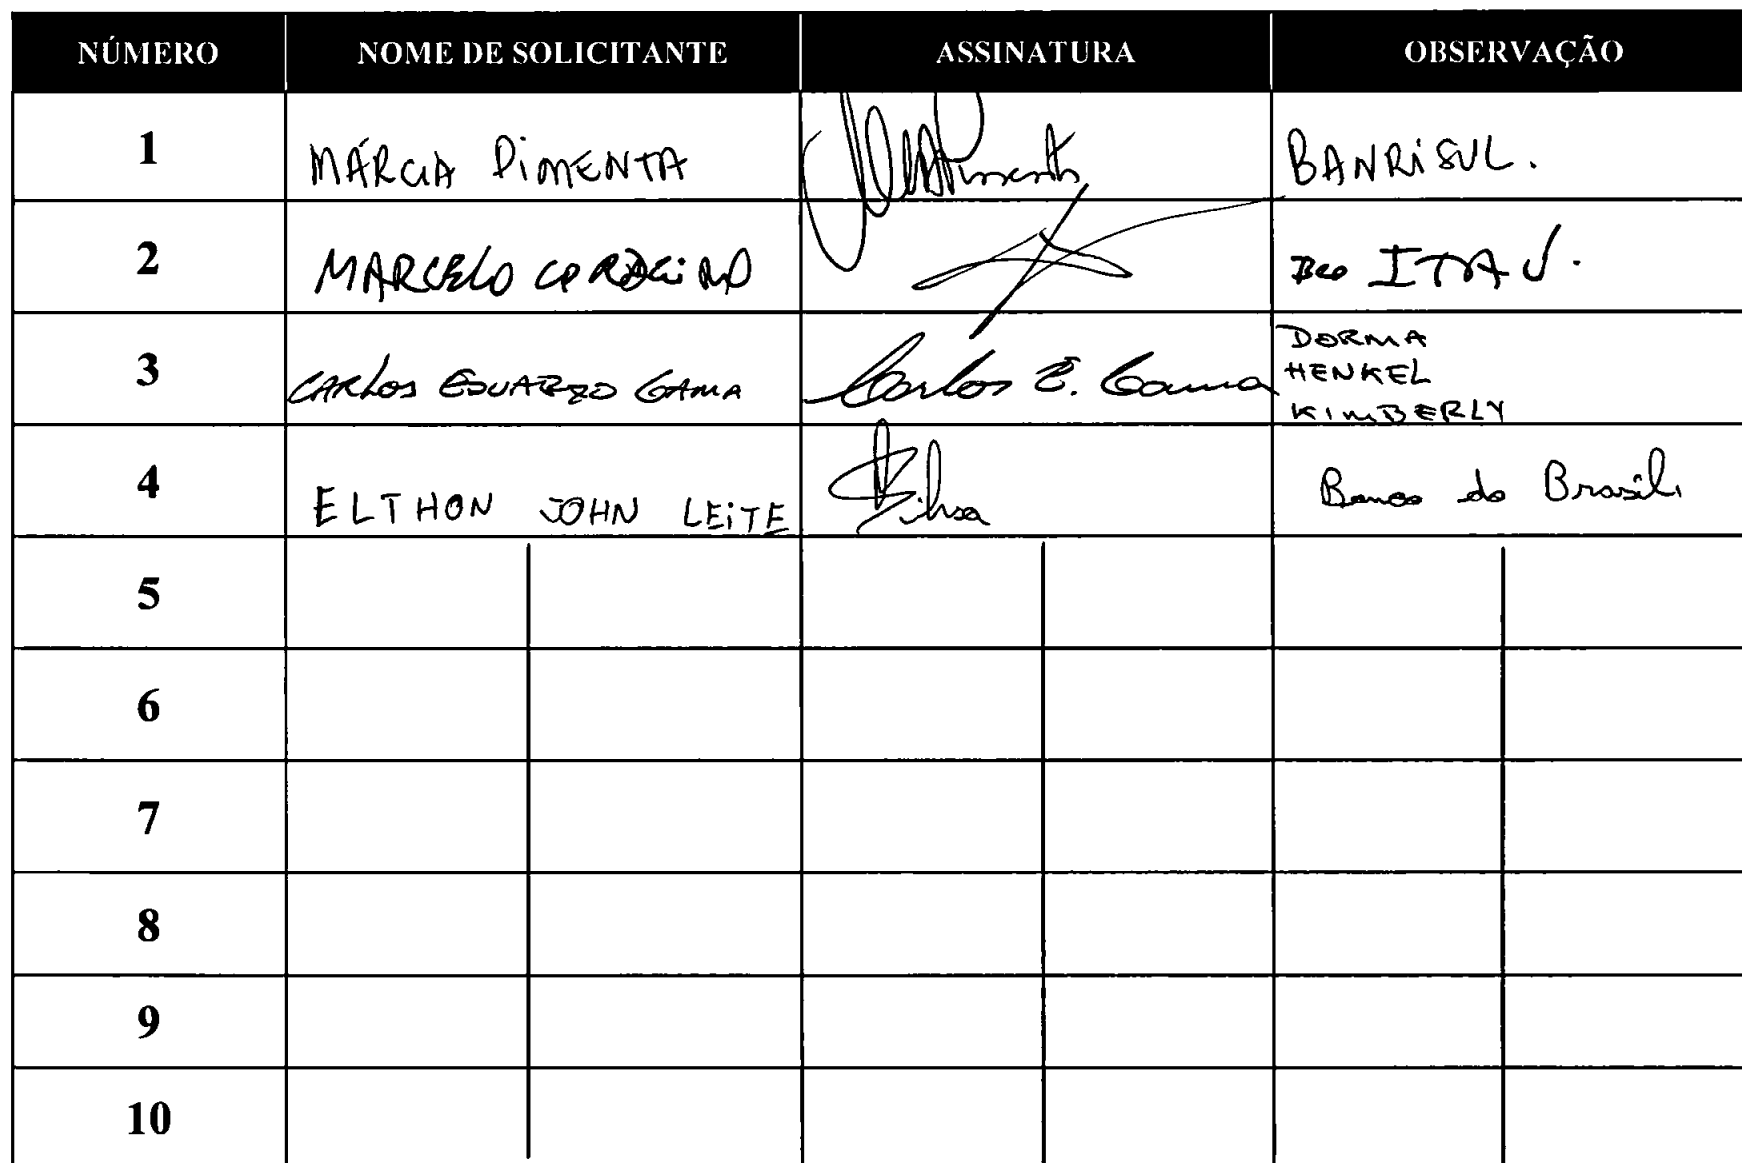 NÚMERO NOME DE SOLICITANTE ASSINATURA OBSERVAÇÃO
1 MÁRCIA PIMENTA Pimenta BANRISUL.
2 MARCELO CORDEIRO Bco ITAÚ.
3 CARLOS EDUARDO GAMA Carlos E. Gama DORMA
HENKEL
KIMBERLY
4 ELTHON JOHN LEITE Silva Banco do Brasil
5
6
7
8
9
10